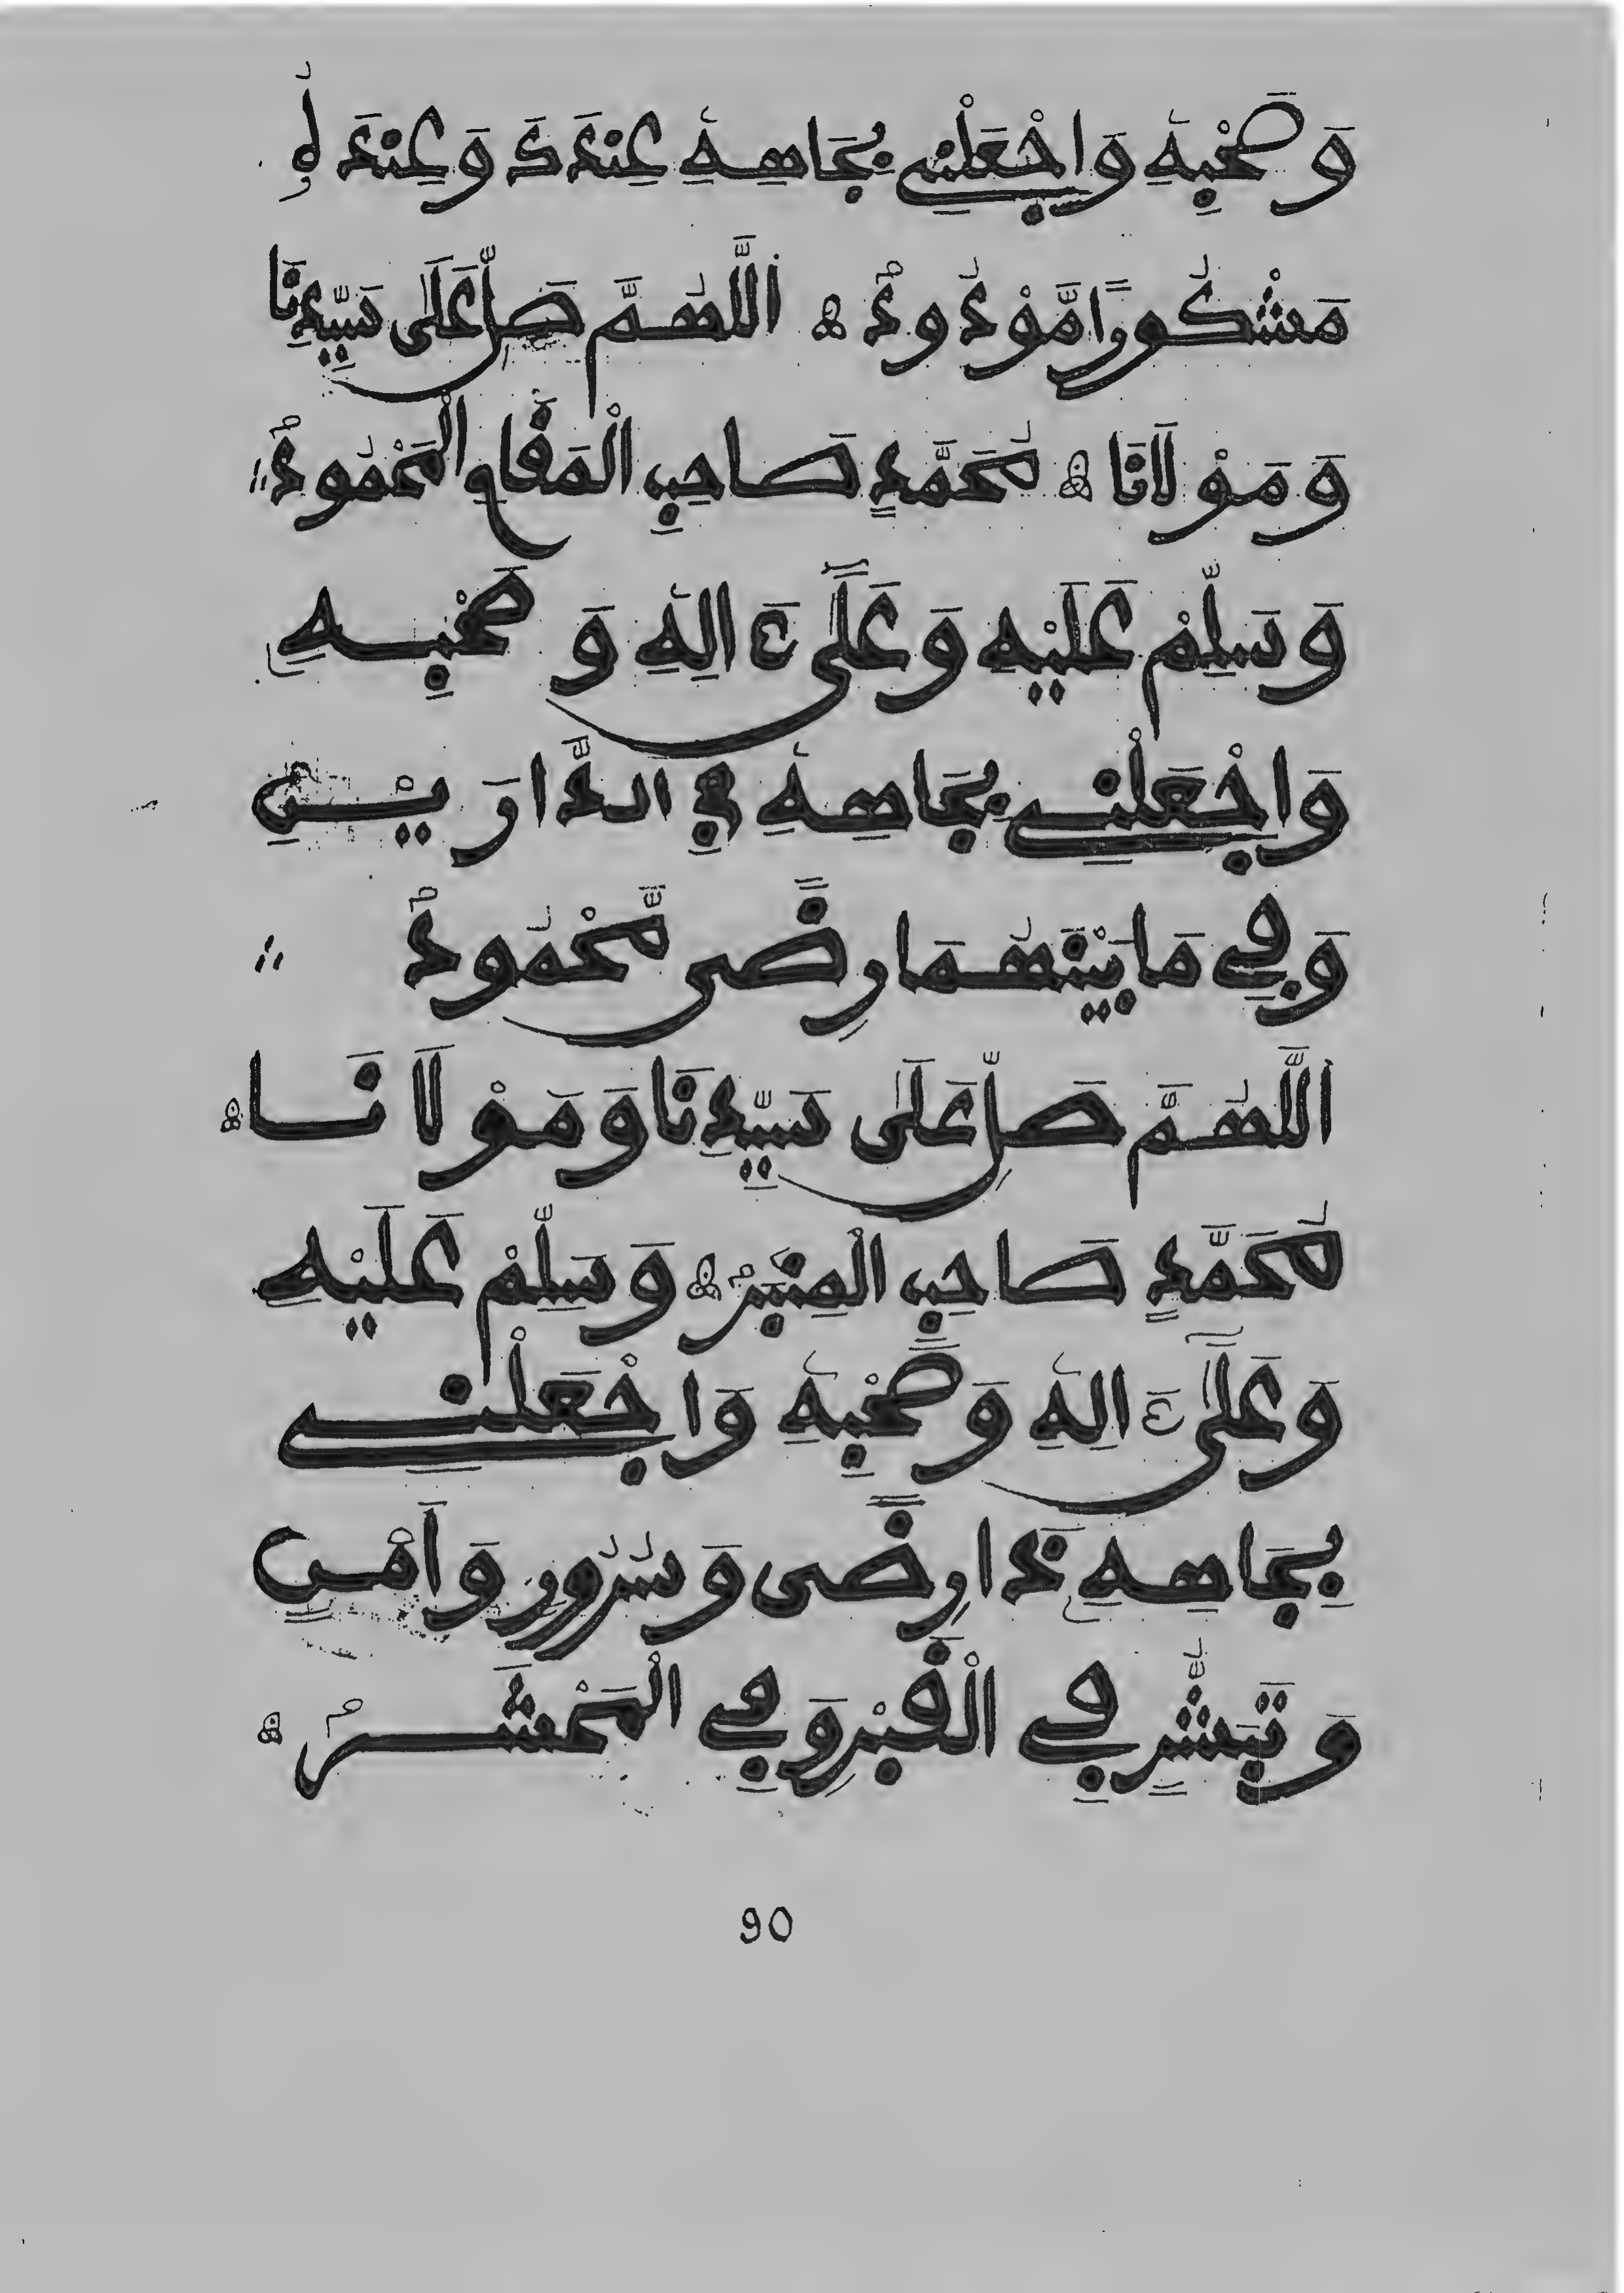 وَصَحْبِهِ وَاجْعَلْنِي بِجَاهِهِ عِنْدَكَ وَعِنْدَهُ
مَشْكُورًا مَّوْدُودُ ۞ اَللَّهُمَّ صَلِّ عَلَى سَيِّدِنَا
وَمَوْلَانَا ۞ مُحَمَّدٍ صَاحِبِ الْمَقَامِ الْمَحْمُودُ
وَسَلِّمْ عَلَيْهِ وَعَلَىٰ ءَالِهِ وَصَحْبِهِ
وَاجْعَلْنِي بِجَاهِهِ فِي الدَّارَيْنِ
وَفِي مَا بَيْنَهُمَا رِضًى مَّحْمُودُ
اَللَّهُمَّ صَلِّ عَلَى سَيِّدِنَا وَمَوْلَانَا ۞
مُحَمَّدٍ صَاحِبِ الْمِنْبَرْ ۞ وَسَلِّمْ عَلَيْهِ
وَعَلَىٰ ءَالِهِ وَصَحْبِهِ وَاجْعَلْنِي
بِجَاهِهِ ذَا رِضًى وَسُرُورٍ وَأَمْنٍ
وَتَبَشُّرٍ فِي الْقَبْرِ وَفِي الْمَحْشَرْ ۞
90